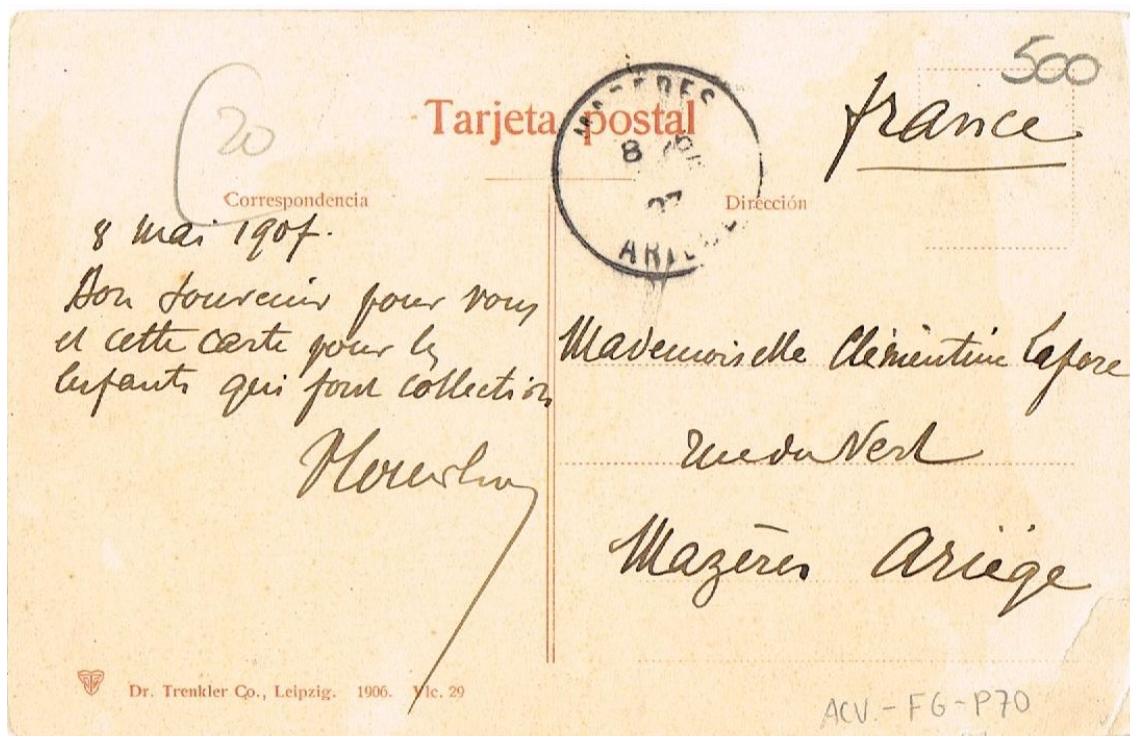 500
20
Tarjeta postal
france
MAZERES
8
07
ARIEGE
Correspondencia
Dirección
8 mai 1907.
Bon souvenir pour vous
et cette carte pour les
enfants qui font collection
Mademoiselle Clémentine
rue du
Mazères Ariège
Dr. Trenkler Co., Leipzig. 1906. Vlc. 29
ACV.-FG-P70